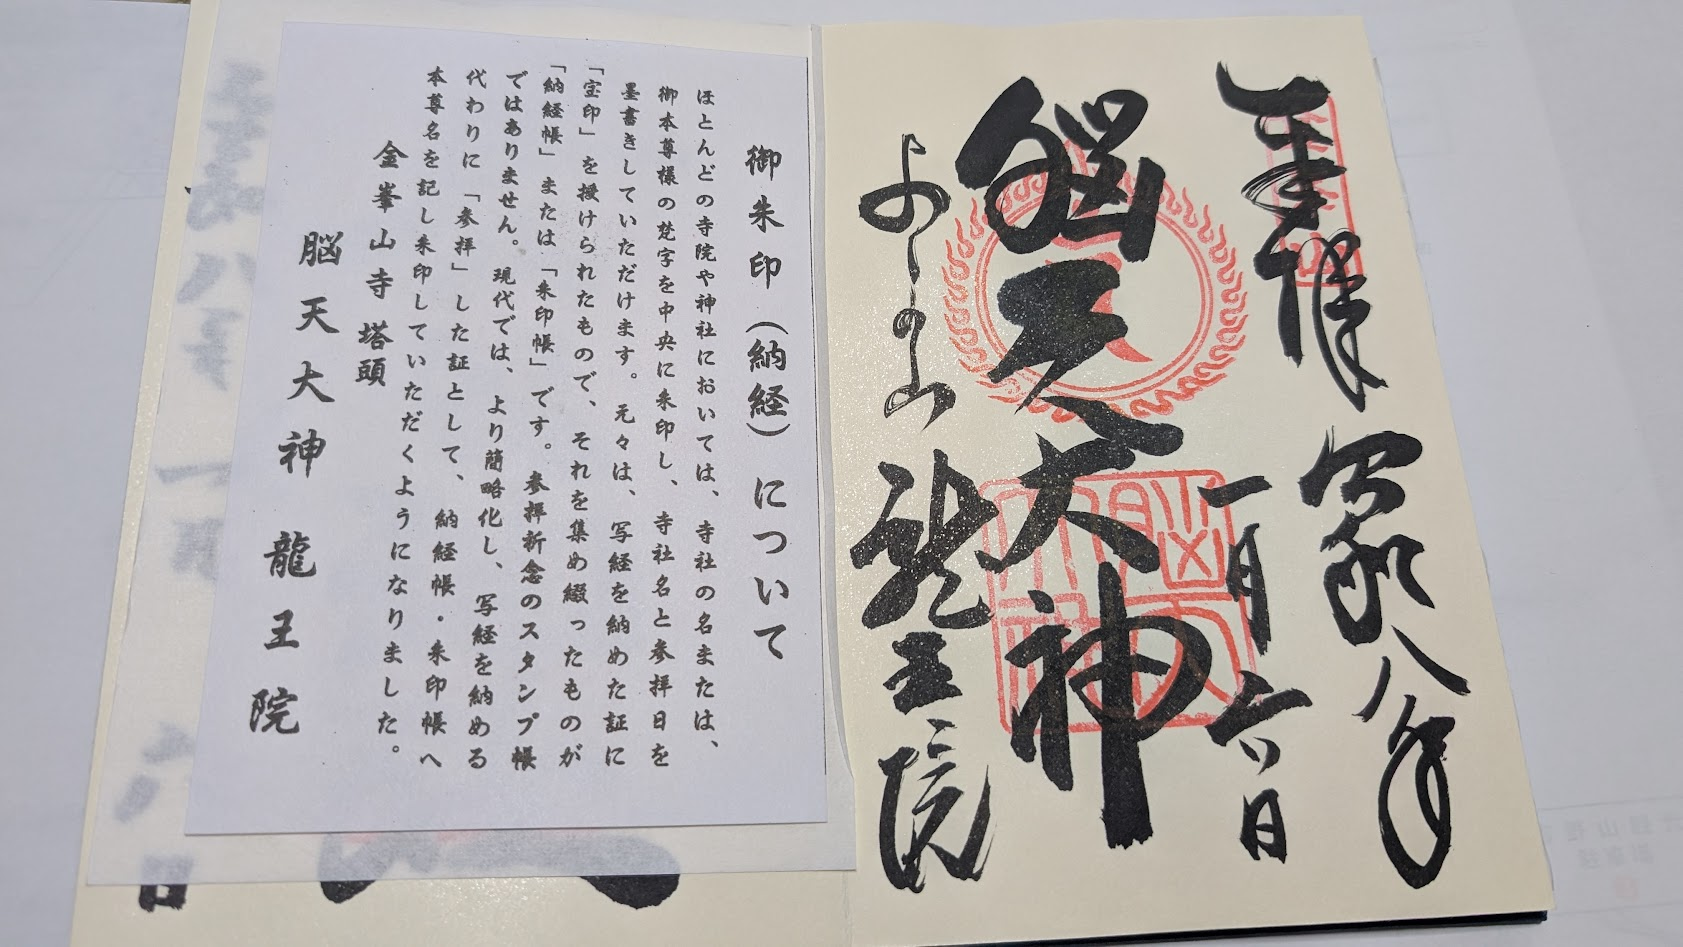 奉拝
令和八年
一月六日
脳天大神
よしの山 龍王院
御朱印（納経）について
ほとんどの寺院や神社においては、寺社の名または、
御本尊様の梵字を中央に朱印し、寺社名と参拝日を
墨書きしていただけます。元々は、写経を納めた証に
「宝印」を授けられたもので、それを集め綴ったものが
「納経帳」または「朱印帳」です。参拝祈念のスタンプ帳
ではありません。現代では、より簡略化し、写経を納める
代わりに「参拝」した証として、納経帳・朱印帳へ
本尊名を記し朱印していただくようになりました。
金峯山寺 塔頭
脳天大神 龍王院